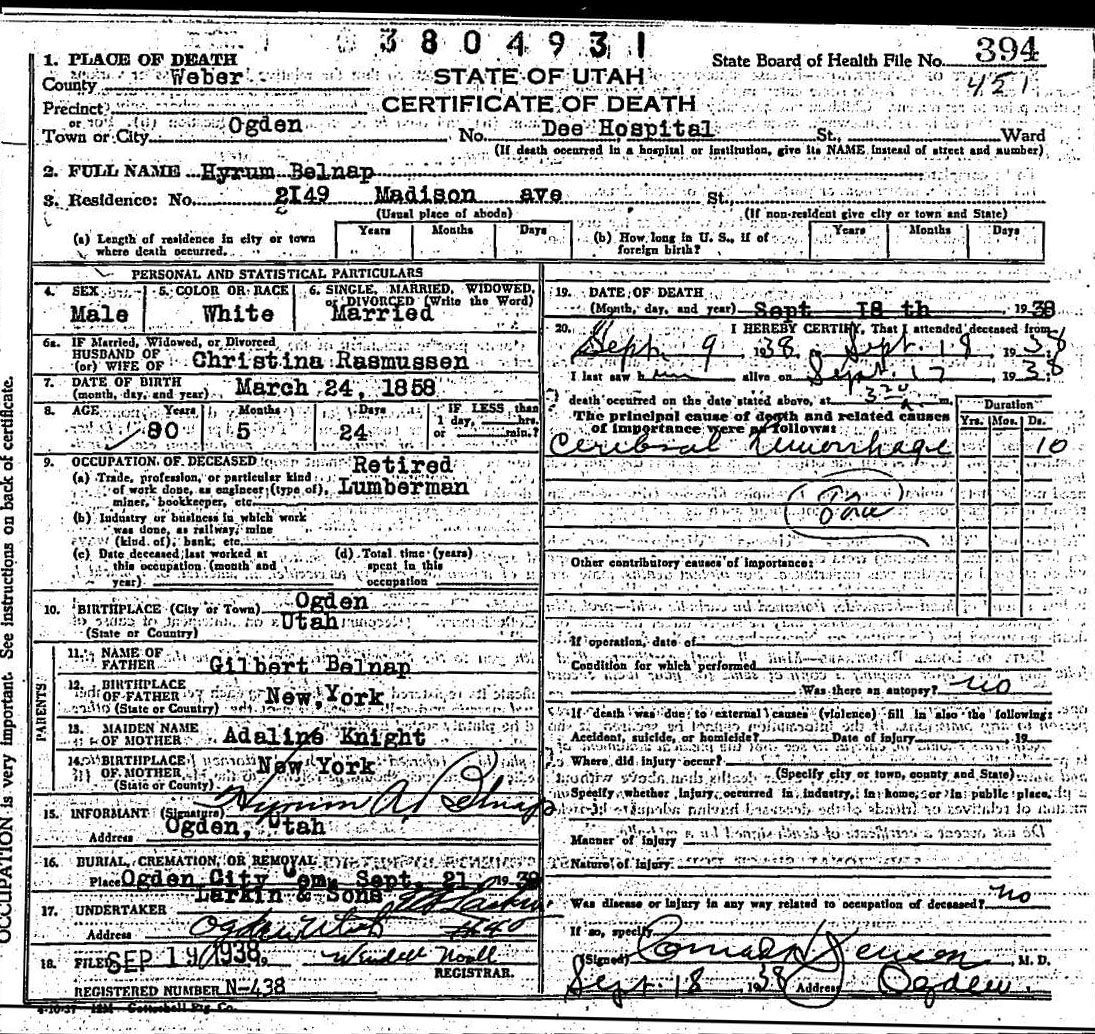 3804931
State Board of Health File No. 394
451
1. PLACE OF DEATH
County Weber
STATE OF UTAH
CERTIFICATE OF DEATH
Precinct
or
Town or City Ogden No. Dee Hospital St. Ward
(If death occurred in a hospital or institution, give its NAME instead of street and number)
2. FULL NAME Hyrum Belnap
3. Residence: No. 2I49 Madison ave St.
(Usual place of abode) (If non-resident give city or town and State)
(a) Length of residence in city or town where death occurred. Years Months Days
(b) How long in U. S., if of foreign birth? Years Months Days
PERSONAL AND STATISTICAL PARTICULARS
4. SEX Male
5. COLOR OR RACE White
6. SINGLE, MARRIED, WIDOWED, or DIVORCED (Write the Word) Married
6a. IF Married, Widowed, or Divorced
HUSBAND OF
(or) WIFE OF Christina Rasmussen
7. DATE OF BIRTH
(month, day, and year) March 24, 1858
8. AGE Years Months Days IF LESS than
1 day, hrs.
or min.?
80 5 24
9. OCCUPATION OF DECEASED Retired
(a) Trade, profession, or particular kind
of work done, as engineer (type of), Lumberman
miner, bookkeeper, etc.
(b) Industry or business in which work
was done, as railway, mine
(kind of), bank, etc.
(c) Date deceased last worked at
this occupation (month and
year)
(d) Total time (years)
spent in this
occupation
10. BIRTHPLACE (City or Town) Ogden
(State or Country) Utah
PARENTS
11. NAME OF
FATHER Gilbert Belnap
12. BIRTHPLACE
OF FATHER New York
(State or Country)
13. MAIDEN NAME
OF MOTHER Adaline Knight
14. BIRTHPLACE
OF MOTHER New York
(State or County)
15. INFORMANT (Signature) Hyrum A. Belnap
Address Ogden, Utah
16. BURIAL, CREMATION, OR REMOVAL
Place Ogden City Cem, Sept. 21, 1938
17. UNDERTAKER Larkin & Sons
Address Ogden Utah
18. FILED SEP 19 1938, Wendell Noall
REGISTRAR.
REGISTERED NUMBER N-438
4-10-37 12M
19. DATE OF DEATH
(Month, day, and year) Sept I8 th, 1938
20. I HEREBY CERTIFY, That I attended deceased from
Sept. 9 1938, Sept. 18 1938
I last saw him alive on Sept. 17 1938
death occurred on the date stated above, at 3 20 A m.
The principal cause of death and related causes
of importance were as follows:
Duration
Yrs. Mos. Ds.
Cerebral Hemorrhage 10
Other contributory causes of importance:
If operation, date of
Condition for which performed
Was there an autopsy? no
If death was due to external causes (violence) fill in also the following:
Accident, suicide, or homicide? Date of injury 19
Where did injury occur?
(Specify city or town, county and State)
Specify whether injury occurred in industry, in home, or in public place.
Manner of injury
Nature of injury
Was disease or injury in any way related to occupation of deceased? no
If so, specify
(Signed) Conrad H Jenson, M. D.
Sept. 18 1938 Address Ogden
OCCUPATION is very important. See instructions on back of certificate.